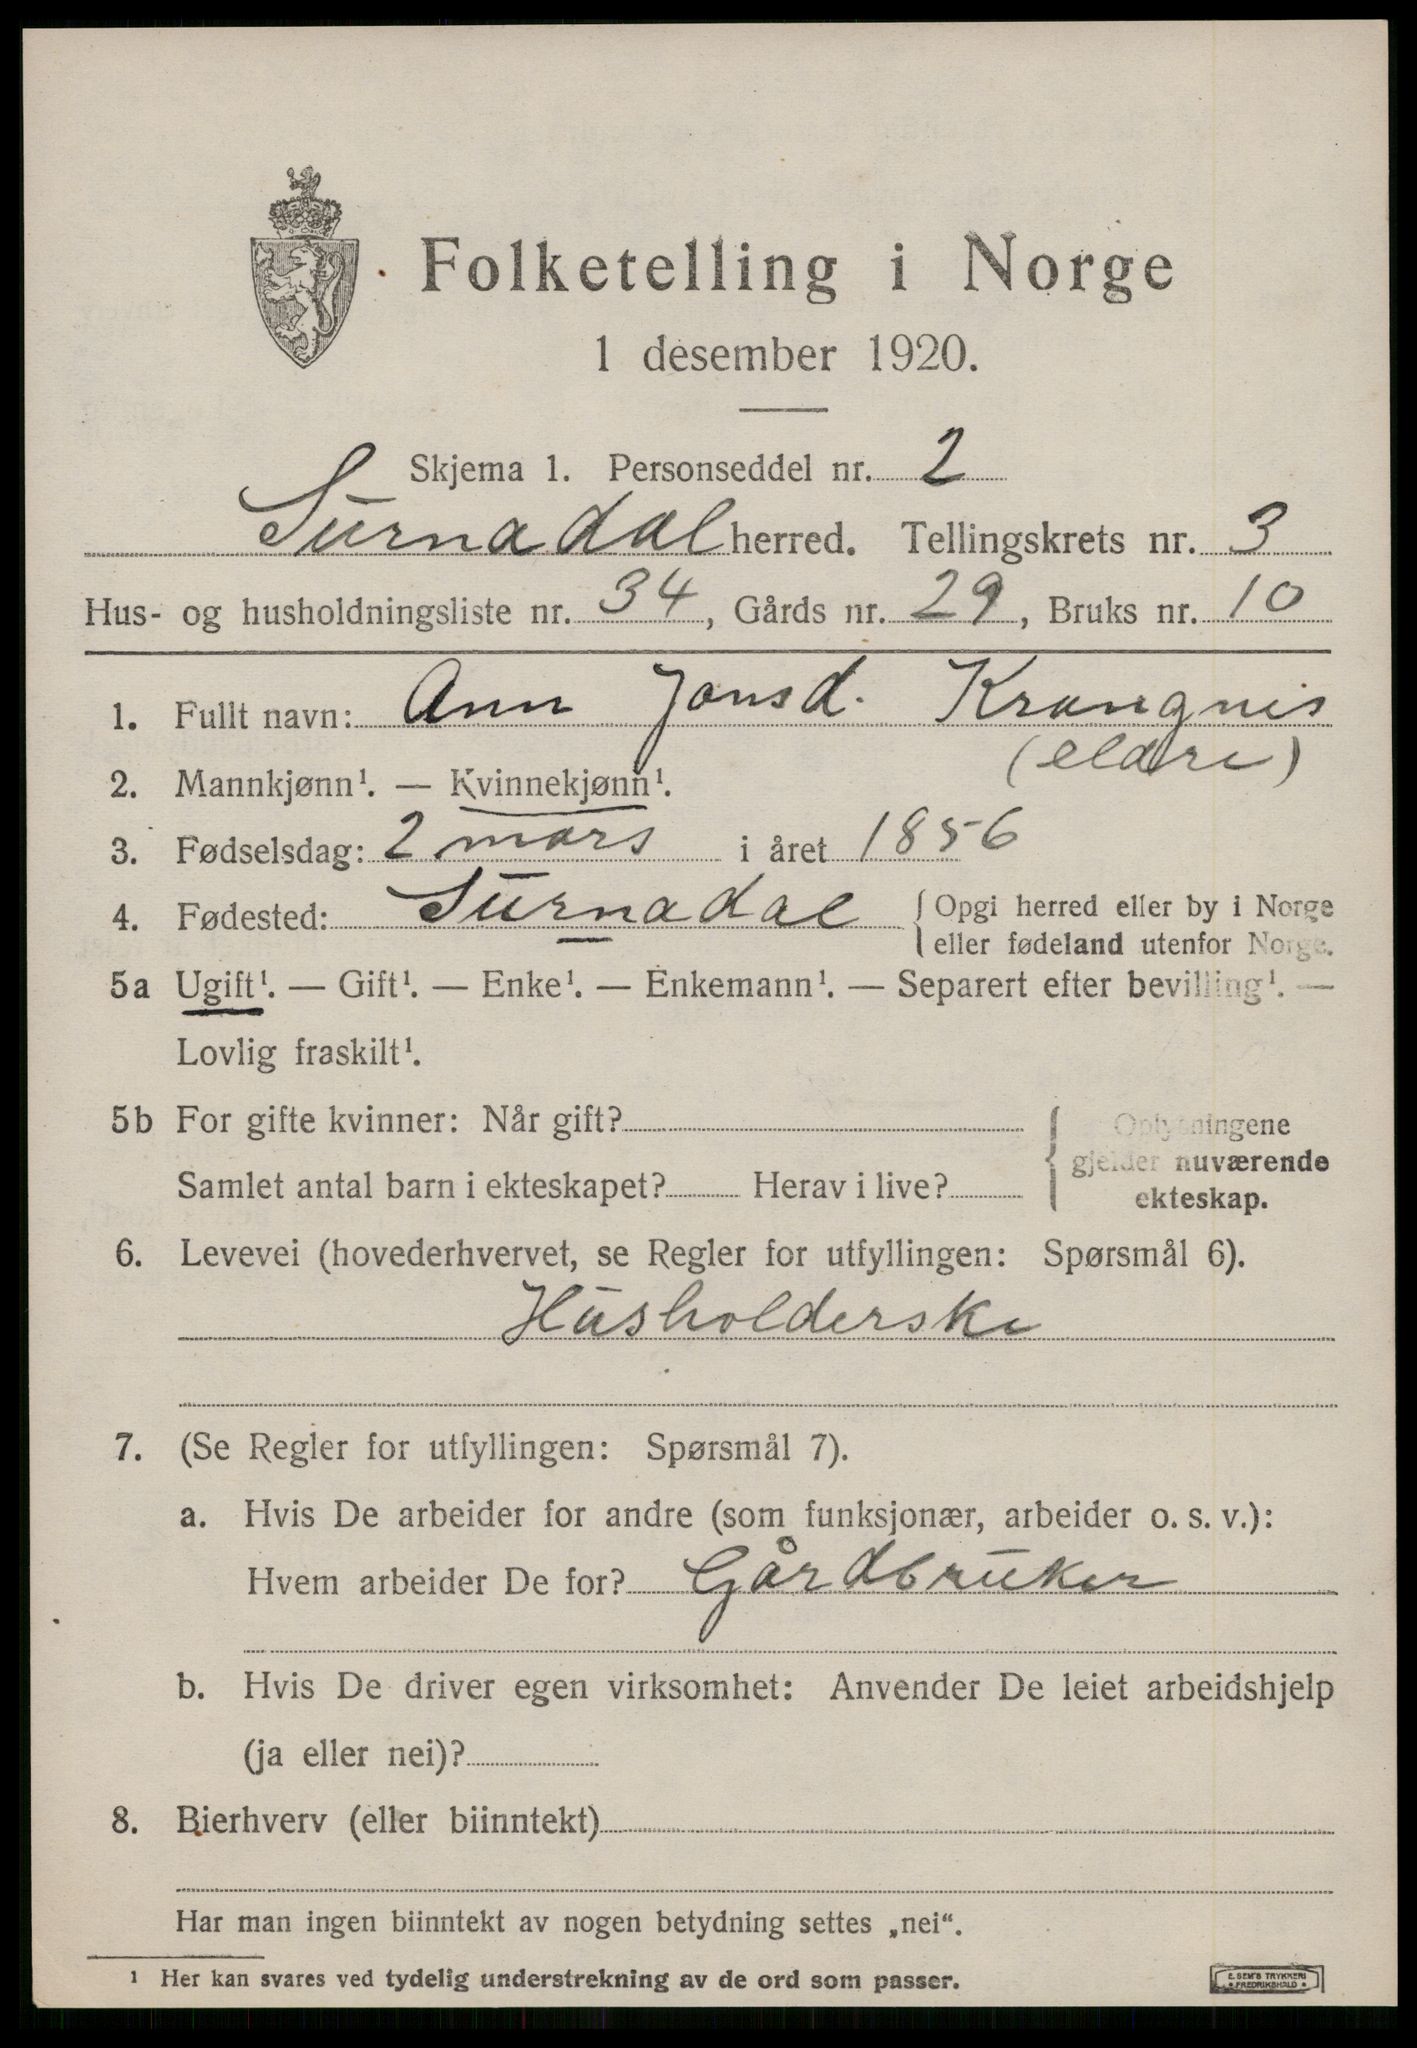 Folketelling i Norge
1 desember 1920.
Skjema 1. Personseddel nr. 2
Surnadal herred. Tellingskrets nr. 3
Hus- og husholdningsliste nr. 34, Gårds nr. 29, Bruks nr. 10
1. Fullt navn: Ann Jonsd. Krangnes
(eldre)
2. Mannkjønn¹. — Kvinnekjønn¹.
3. Fødselsdag: 2 mars i året 1856
4. Fødested: Surnadal { Opgi herred eller by i Norge
eller fødeland utenfor Norge.
5a Ugift¹. — Gift¹. — Enke¹. — Enkemann¹. — Separert efter bevilling¹. —
Lovlig fraskilt¹.
5b For gifte kvinner: Når gift? { Oplysningene
gjelder nuværende
Samlet antal barn i ekteskapet? Herav i live? ekteskap.
6. Levevei (hovederhvervet, se Regler for utfyllingen: Spørsmål 6).
Husholderske
7. (Se Regler for utfyllingen: Spørsmål 7).
a. Hvis De arbeider for andre (som funksjonær, arbeider o. s. v.):
Hvem arbeider De for? Gårdbruker
b. Hvis De driver egen virksomhet: Anvender De leiet arbeidshjelp
(ja eller nei)?
8. Bierhverv (eller biinntekt)
Har man ingen biinntekt av nogen betydning settes „nei“.
¹ Her kan svares ved tydelig understrekning av de ord som passer.
E. SEM'S TRYKKERI
• FREDRIKSHALD •